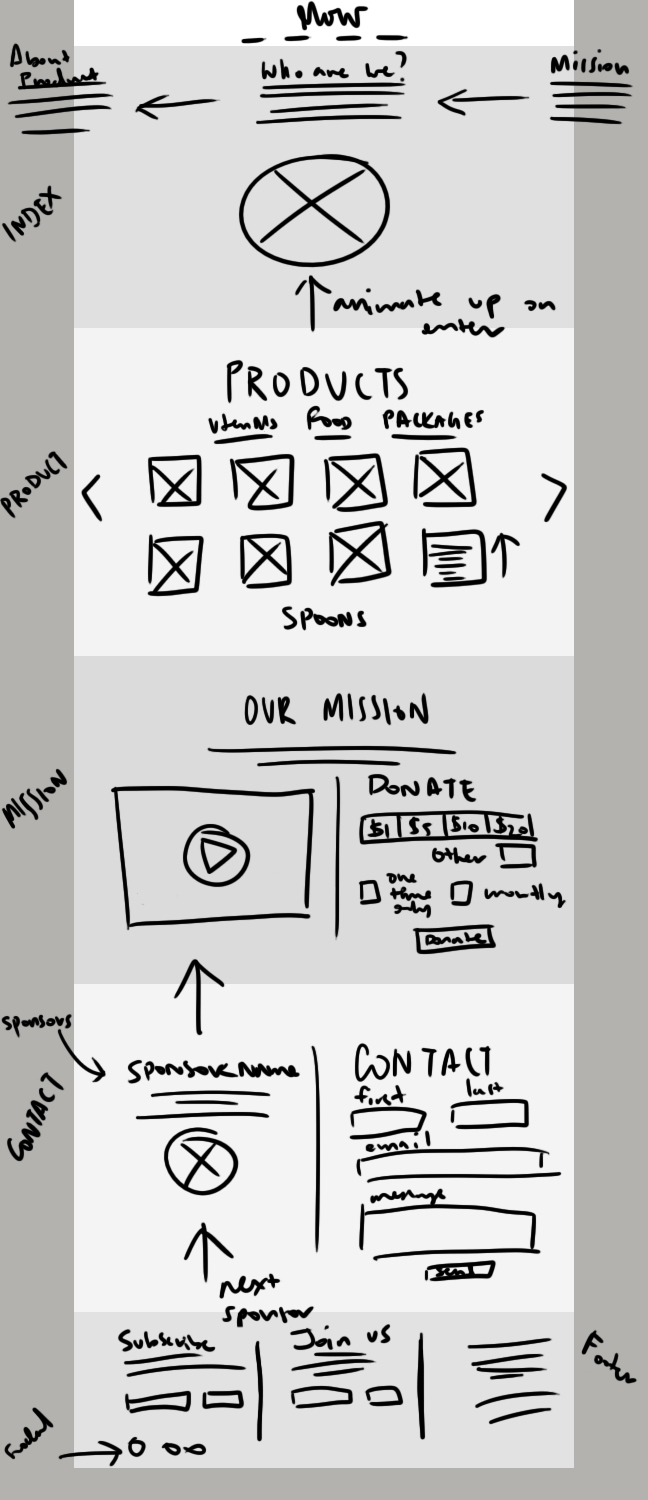 About
Product
Who are we?
Mission
INDEX
animate up on
enter
PRODUCTS
FOOD
PACKAGES
PRODUCT
SPOONS
OUR MISSION
MISSION
DONATE
$1 $5 $10 $20
Other
one
time
only
monthly
Donate
Sponsors
CONTACT
CONTACT
first
last
email
message
send
next
sponsor
Subscribe
Join us
Footer